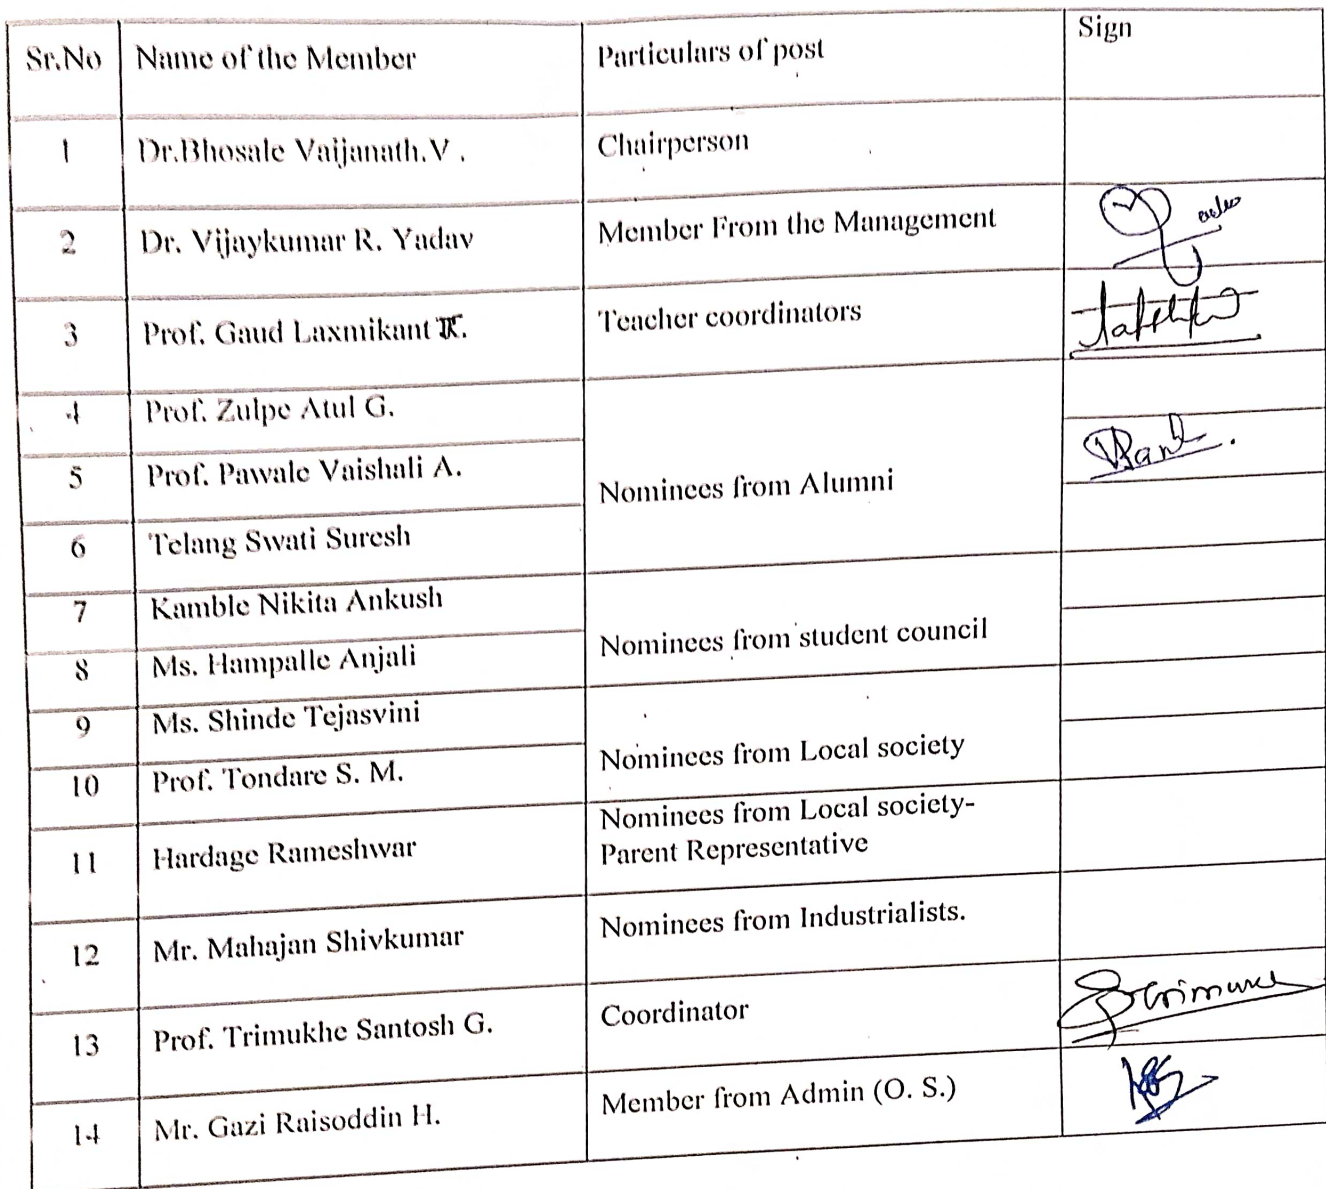 Sr.No Name of the Member Particulars of post Sign
1 Dr.Bhosale Vaijanath.V . Chairperson
2 Dr. Vijaykumar R. Yadav Member From the Management
3 Prof. Gaud Laxmikant K. Teacher coordinators
4 Prof. Zulpe Atul G.
5 Prof. Pawale Vaishali A.
Nominees from Alumni
6 Telang Swati Suresh
7 Kamble Nikita Ankush
Nominees from student council
8 Ms. Hampalle Anjali
9 Ms. Shinde Tejasvini
Nominees from Local society
10 Prof. Tondare S. M.
Nominees from Local society-
11 Hardage Rameshwar Parent Representative
12 Mr. Mahajan Shivkumar Nominees from Industrialists.
13 Prof. Trimukhe Santosh G. Coordinator
14 Mr. Gazi Raisoddin H. Member from Admin (O. S.)